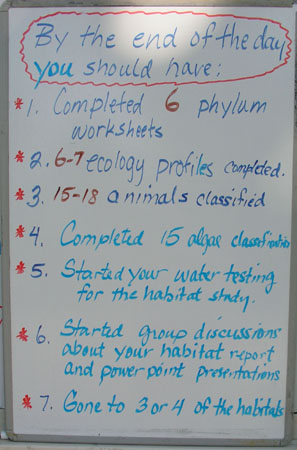 By the end of the day
you should have:
* 1. Completed 6 phylum
worksheets
* 2. 6-7 ecology profiles completed.
* 3. 15-18 animals classified
* 4. Completed 15 algae classification
* 5. Started your water testing
for the habitat study.
* 6. Started group discussions
about your habitat report
and powerpoint presentations
* 7. Gone to 3 or 4 of the habitats